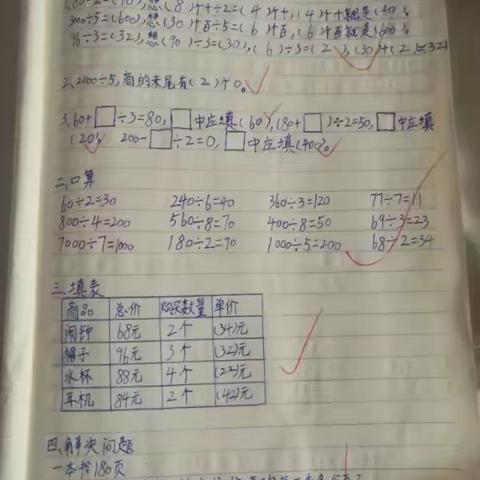 80÷2=(40),想(8)个十÷2=(4)个十,(4)个十就是(40)。
3000÷5=(600),想(30)个百÷5=(6)个百,(6)个百就是(600)。
96÷3=(32),想(90)÷3=(30),(6)÷3=(2),(30)+(2)=(32)
2、2000÷5,商的末尾有(2)个0。
3、60+□÷3=80,□中应填(60),(80+□)÷2=50,□中应填
(20),200-□÷2=0,□中应填(400)。
二、口算
60÷2=30 240÷6=40 360÷3=120 77÷7=11
800÷4=200 560÷8=70 400÷8=50 69÷3=23
7000÷7=1000 180÷2=90 1000÷5=200 68÷2=34
三、填表
商品 总价 购买数量 单价
闹钟 68元 2个 (34)元
帽子 96元 3个 (32)元
水杯 88元 4个 (22)元
耳机 84元 2个 (42)元
四、解决问题
一本书180页